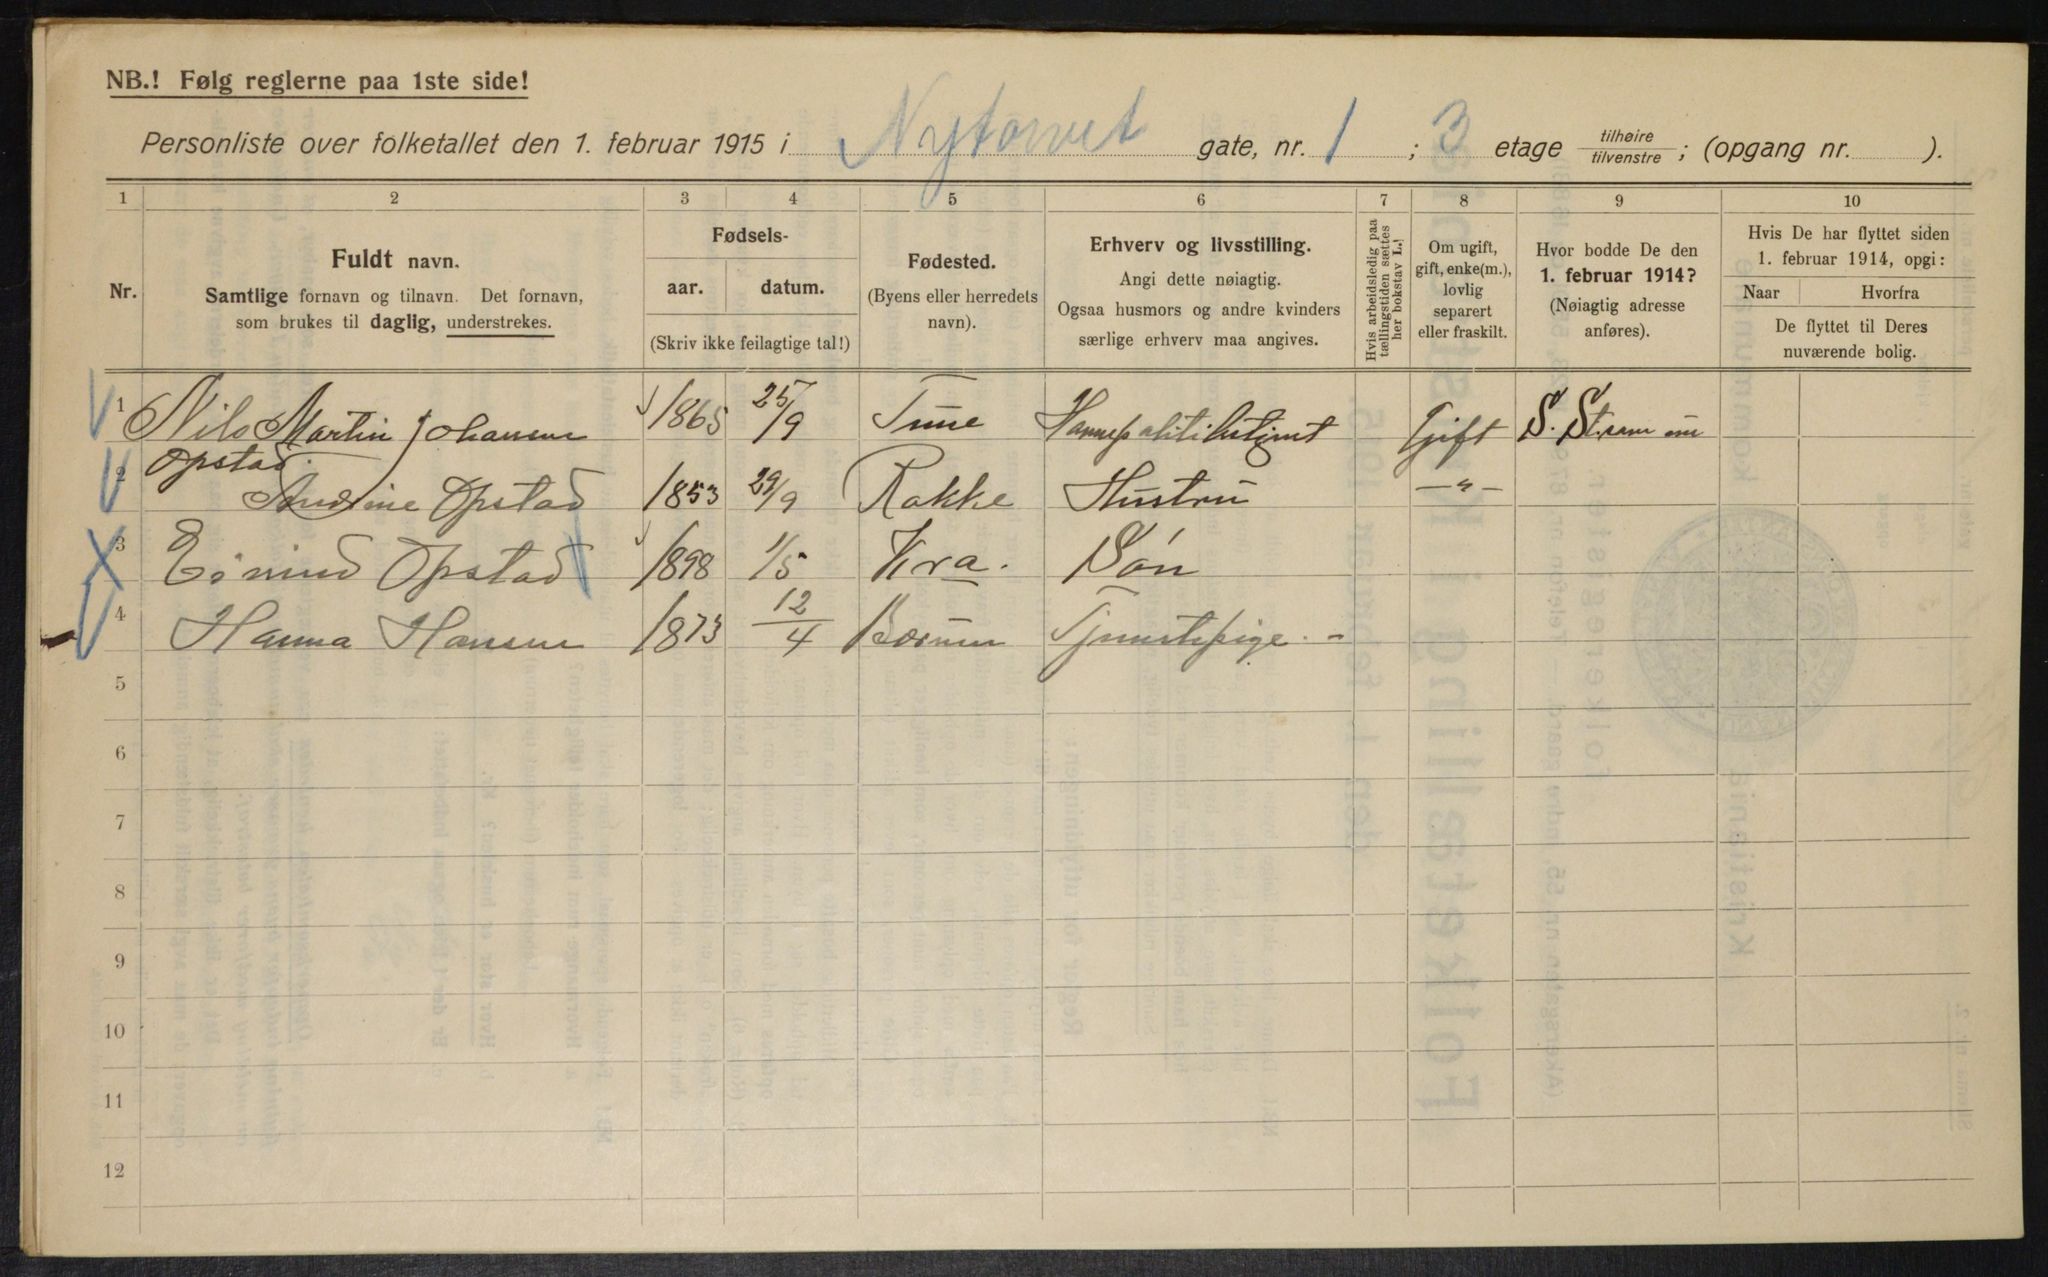 NB.! Følg reglerne paa 1ste side!
Personliste over folketallet den 1. februar 1915 i Nytorvet gate, nr. 1 ; 3 etage tilhøire/tilvenstre ; (opgang nr. ).
1 2 3 4 5 6 7 8 9 10
Nr.
Fuldt navn.
Samtlige fornavn og tilnavn. Det fornavn,
som brukes til daglig, understrekes.
Fødsels-
aar. datum.
(Skriv ikke feilagtige tal!)
Fødested.
(Byens eller herredets
navn).
Erhverv og livsstilling.
Angi dette nøiagtig.
Ogsaa husmors og andre kvinders
særlige erhverv maa angives.
Hvis arbeidsledig paa
tællingstiden sættes
her bokstav L.!
Om ugift,
gift, enke(m.),
lovlig
separert
eller fraskilt.
Hvor bodde De den
1. februar 1914?
(Nøiagtig adresse
anføres).
Hvis De har flyttet siden
1. februar 1914, opgi:
Naar Hvorfra
De flyttet til Deres
nuværende bolig.
1 Nils Martin Johansen 1865 25/9 Tune Gift S. St. som nu
Opstad.
2 Andrine Opstad 1853 29/9 Rakke Hustru — " —
3 Eivind Opstad 1898 1/5 Kra. Søn
4 Hanna Hansen 1873 12/4 Bærum Tjenestepige. -
5
6
7
8
9
10
11
12